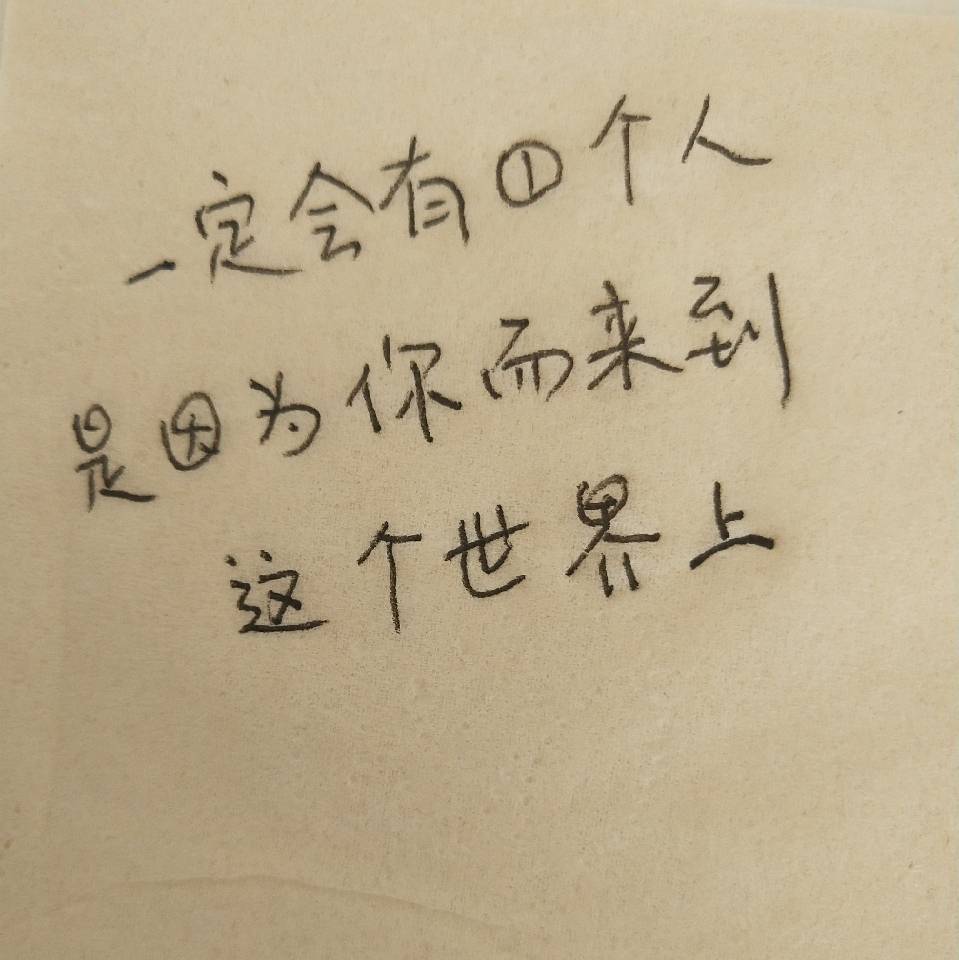 一定会有①个人
是因为你而来到
这个世界上